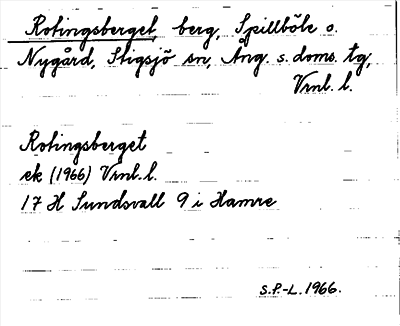 Rotingsberget, berg, Spillböle o.
Nygård, Stigsjö sn, Ång. s. doms. tg,
Vnl. l.
Rotingsberget
ek (1966) Vnl. l.
17 H Sundsvall 9 i Hamre
S.P.-L. 1966.